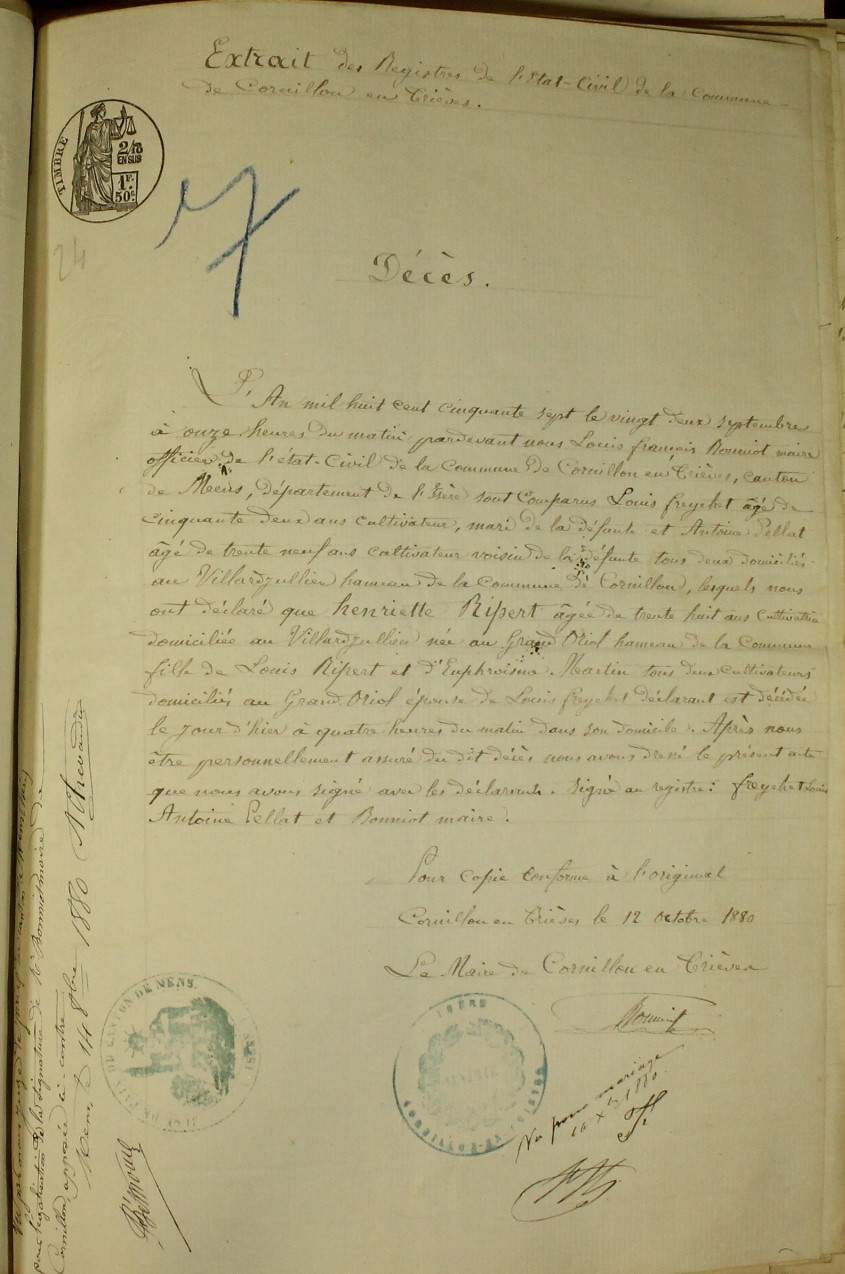 Extrait des Registres de l'Etat-Civil de la Commune
de Cornillon en Trièves.
TIMBRE
2/10
EN SUS
1F.
50c.
7
24
Décès.
L'An mil huit cent cinquante sept le vingt deux septembre
à onze heures du matin pardevant nous Louis françois Bonniot maire
officier de l'état-Civil de la Commune de Cornillon en Trièves, canton
de Mens, département de l'Isère sont comparus Louis freychet âgé de
cinquante deux ans cultivateur, mari de la défunte et Antoine Pellat
âgé de trente neuf ans cultivateur voisin de la défunte tous deux domiciliés
au Villardjullien hameau de la Commune de Cornillon, lesquels nous
ont déclaré que henriette Ripert âgée de trente huit ans cultivatrice
domiciliée au Villardjullien née au Grand Oriol hameau de la Commune
fille de Louis Ripert et d'Euphroisine Martin tous deux cultivateurs
domiciliés au Grand Oriol épouse de Louis freychet déclarant est décédée
le jour d'hier à quatre heures du matin dans son domicile. Après nous
être personnellement assuré du dit décès nous avons dressé le présent acte
que nous avons signé avec les déclarants. Signé au registre: freychet Louis
Antoine Pellat et Bonniot maire.
Pour copie conforme à l'original
Cornillon en Trièves le 12 octobre 1880
Le Maire de Cornillon en Trièves
Bonniot
Vu pour mariage
10 Xbre 1880
ISERE
MAIRIE
CANTON DE MENS
pour légalisation de la signature de Mr Bonniot maire de
Cornillon, apposée ci-contre
Mens le 14 8bre 1880